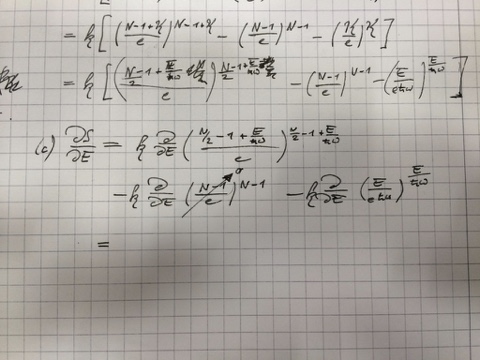 = k[((N-1+K)/e)^(N-1+K) - ((N-1)/e)^(N-1) - (K/e)^K]
= k[((N/2-1+E/ħω)/e)^(N/2-1+E/ħω) - ((N-1)/e)^(N-1) - (E/eħω)^(E/ħω)]
(c) ∂S/∂E = k ∂/∂E ((N/2-1+E/ħω)/e)^(N/2-1+E/ħω)
-k ∂/∂E ((N-1)/e)^(N-1) 0 -k ∂/∂E (E/eħω)^(E/ħω)
=